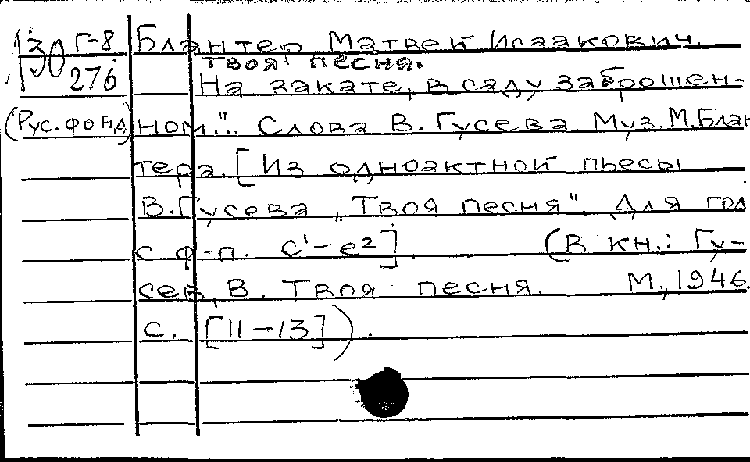 130 Г-8 Блантер Матвей Исаакович.
Твоя песня.
276 На закате, в саду заброшен-
(Рус. фонд) ном...". Слова В. Гусева Муз. М. Блан
тера. [Из одноактной пьесы
В. Гусева „Твоя песня". Для гол
с ф-п. c¹-e²]. (В кн.: Гу-
сев, В. Твоя песня. М., 1946.
с. [11-13]).